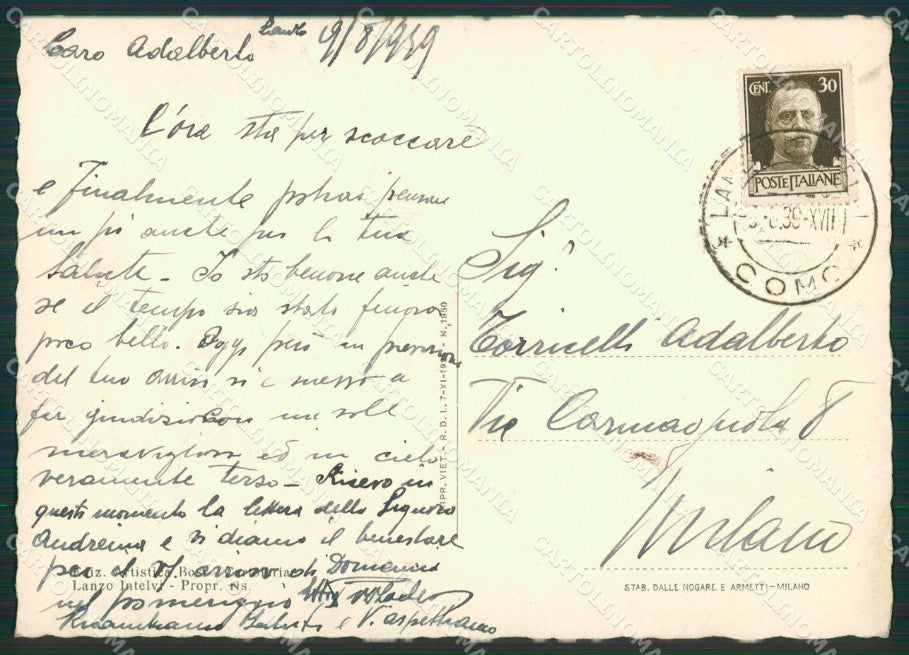 Lanzo 9/8/1939
Caro Adalberto
L'ora sta per scoccare
e finalmente potrai pensare
un pò anche per la tua
salute - Io sto benone anche
se il tempo sia stato finora
poco bello. Oggi però in previsione
del tuo arrivo si è messo a
far giudizio con un sole
meraviglioso ed un cielo
veramente terso - Ricevo in
questo momento la lettera della Signora
Andreina e vi diamo il benestare
per il arrivo di Domenica
nel pomeriggio
Ricambiamo saluti e V. aspettiamo
Ediz. Artistica
Lanzo Intelvi - Propr. ris.
IMPR. VIET. - R. D. L. 7-XI-19 - N. 1950
CENT. 30
POSTE ITALIANE
LAN
39-XVII
* COMO *
Sig.
Torricelli Adalberto
Via Carmagnola 8
Milano
STAB. DALLE NOGARE E ARMETTI-MILANO
CARTOLINOMANIA